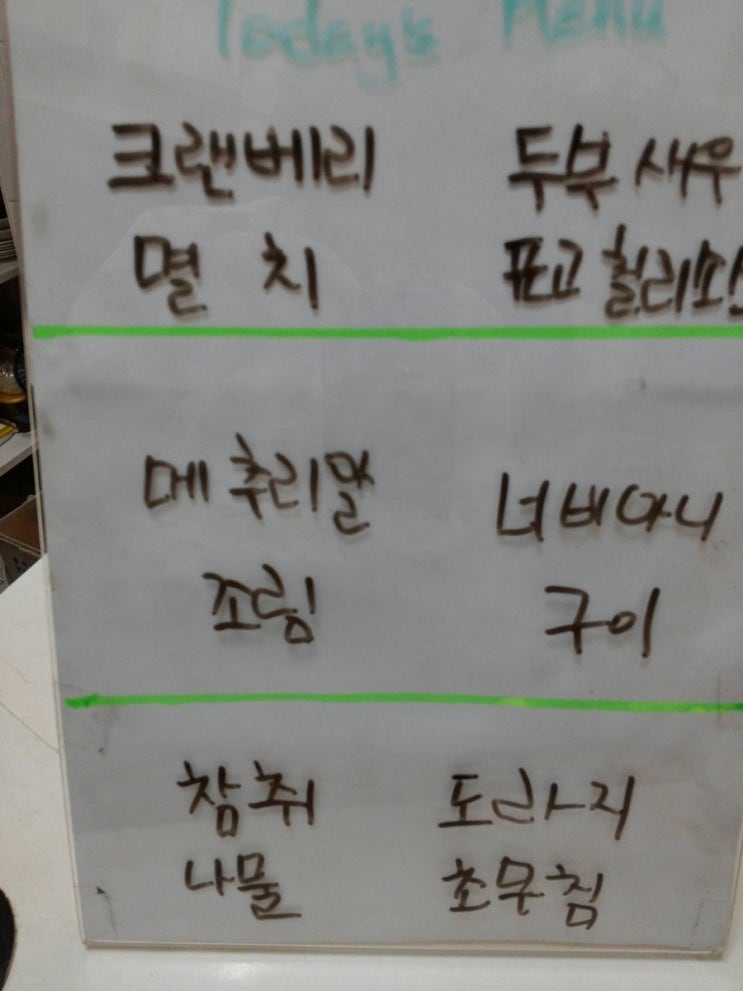 Today's Menu
크랜베리
멸 치
두부 새우
표고 칠리소스
메추리알
조림
너비아니
구이
참취
나물
도라지
초무침